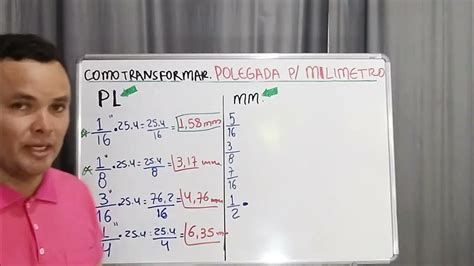 COMO TRANSFORMAR. POLEGADA P/ MILIMETRO
PL
1/16" • 25.4 = 25.4/16 = 1,58 mm
1/8" • 25.4 = 25.4/8 = 3,17 mm
3/16" • 25.4 = 76,2/16 = 4,76 mm
1/4" • 25.4 = 25.4/4 = 6,35 mm
mm.
5/16
3/8
7/16
1/2 •